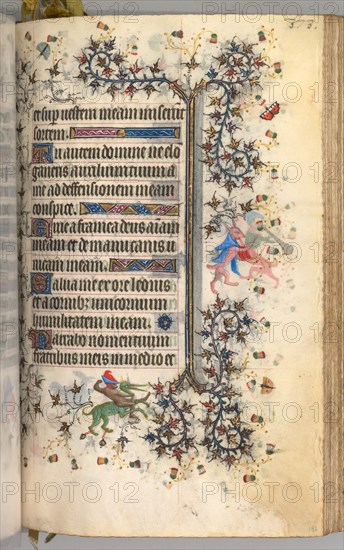 et sup vestem meam miserūt
sortem.
Tu autem domine ne elō
gaueris auxilium tuum a
me ad deffensionem meam
conspice.
Erue a framea deus aīam
meam et de manu canis uī
cam meam
Salua me ex ore leonis
et a cornibꝫ unicornium
humilitatem meam.
Narrabo nomen tuum
fratribus meis in medio ec
PHOTO12